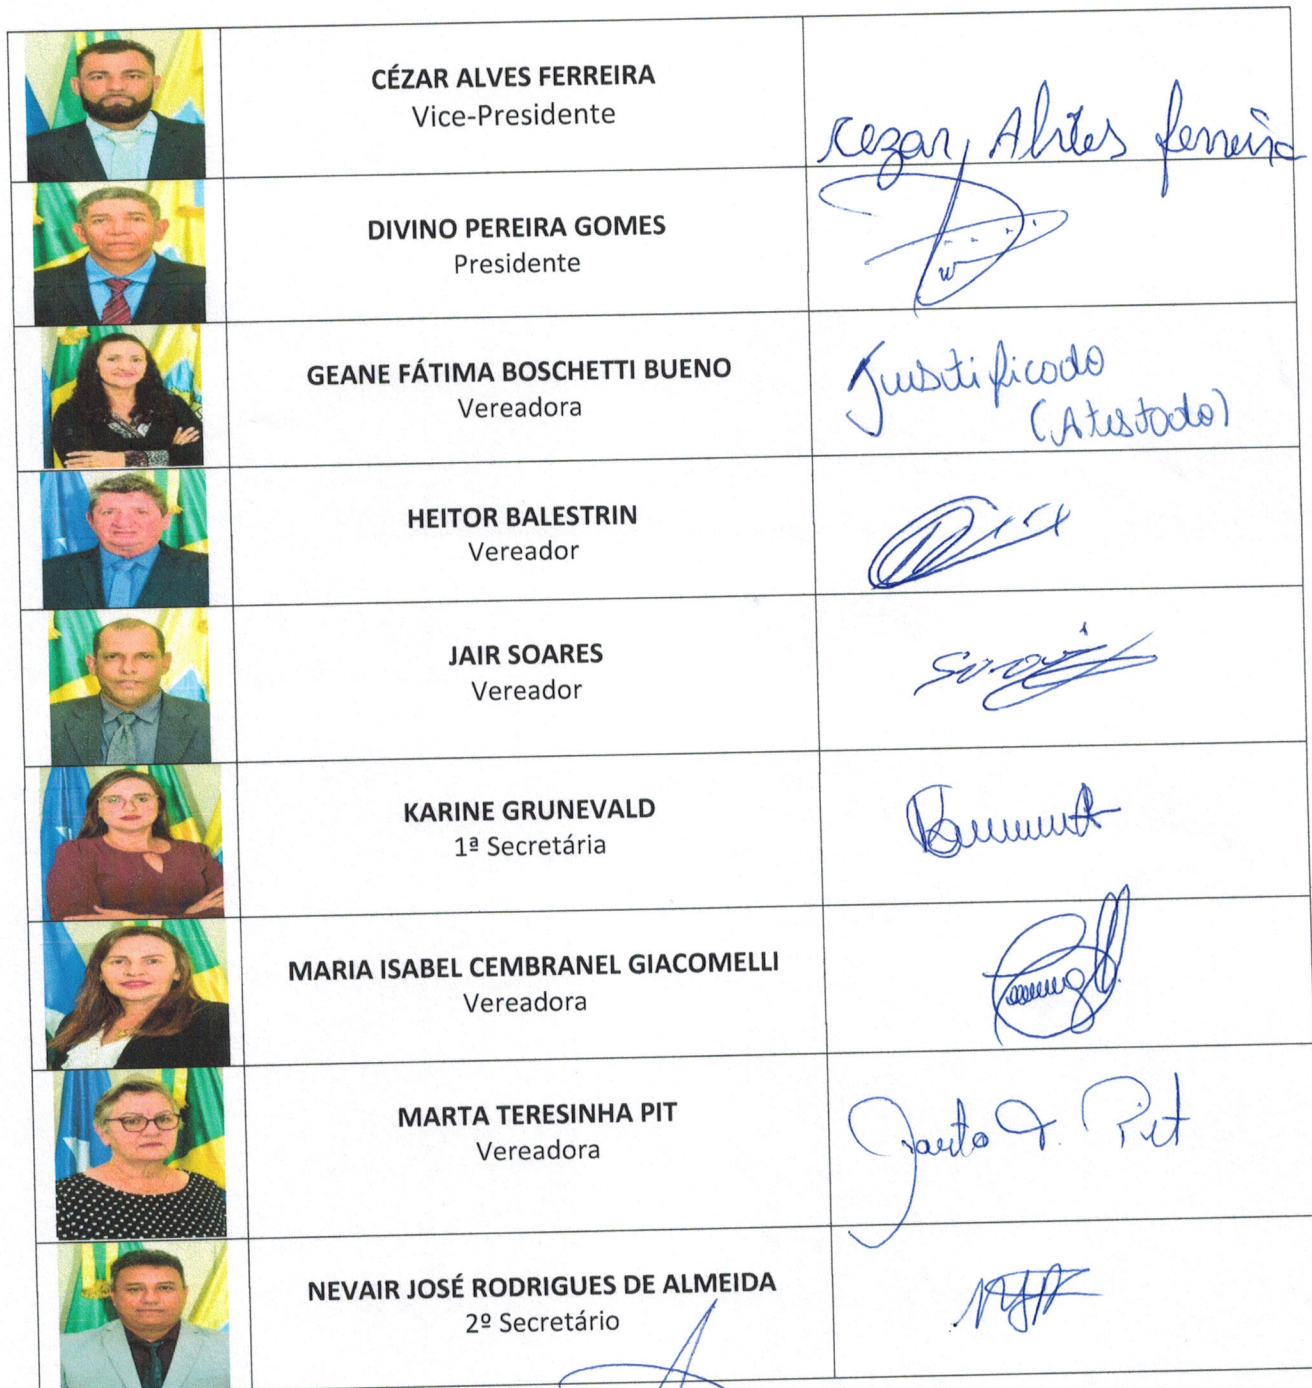 CÉZAR ALVES FERREIRA
Vice-Presidente
Cezar Alves ferreira
DIVINO PEREIRA GOMES
Presidente
GEANE FÁTIMA BOSCHETTI BUENO
Vereadora
Justificado
(Atestado)
HEITOR BALESTRIN
Vereador
JAIR SOARES
Vereador
KARINE GRUNEVALD
1ª Secretária
MARIA ISABEL CEMBRANEL GIACOMELLI
Vereadora
MARTA TERESINHA PIT
Vereadora
Marta T. Pit
NEVAIR JOSÉ RODRIGUES DE ALMEIDA
2º Secretário